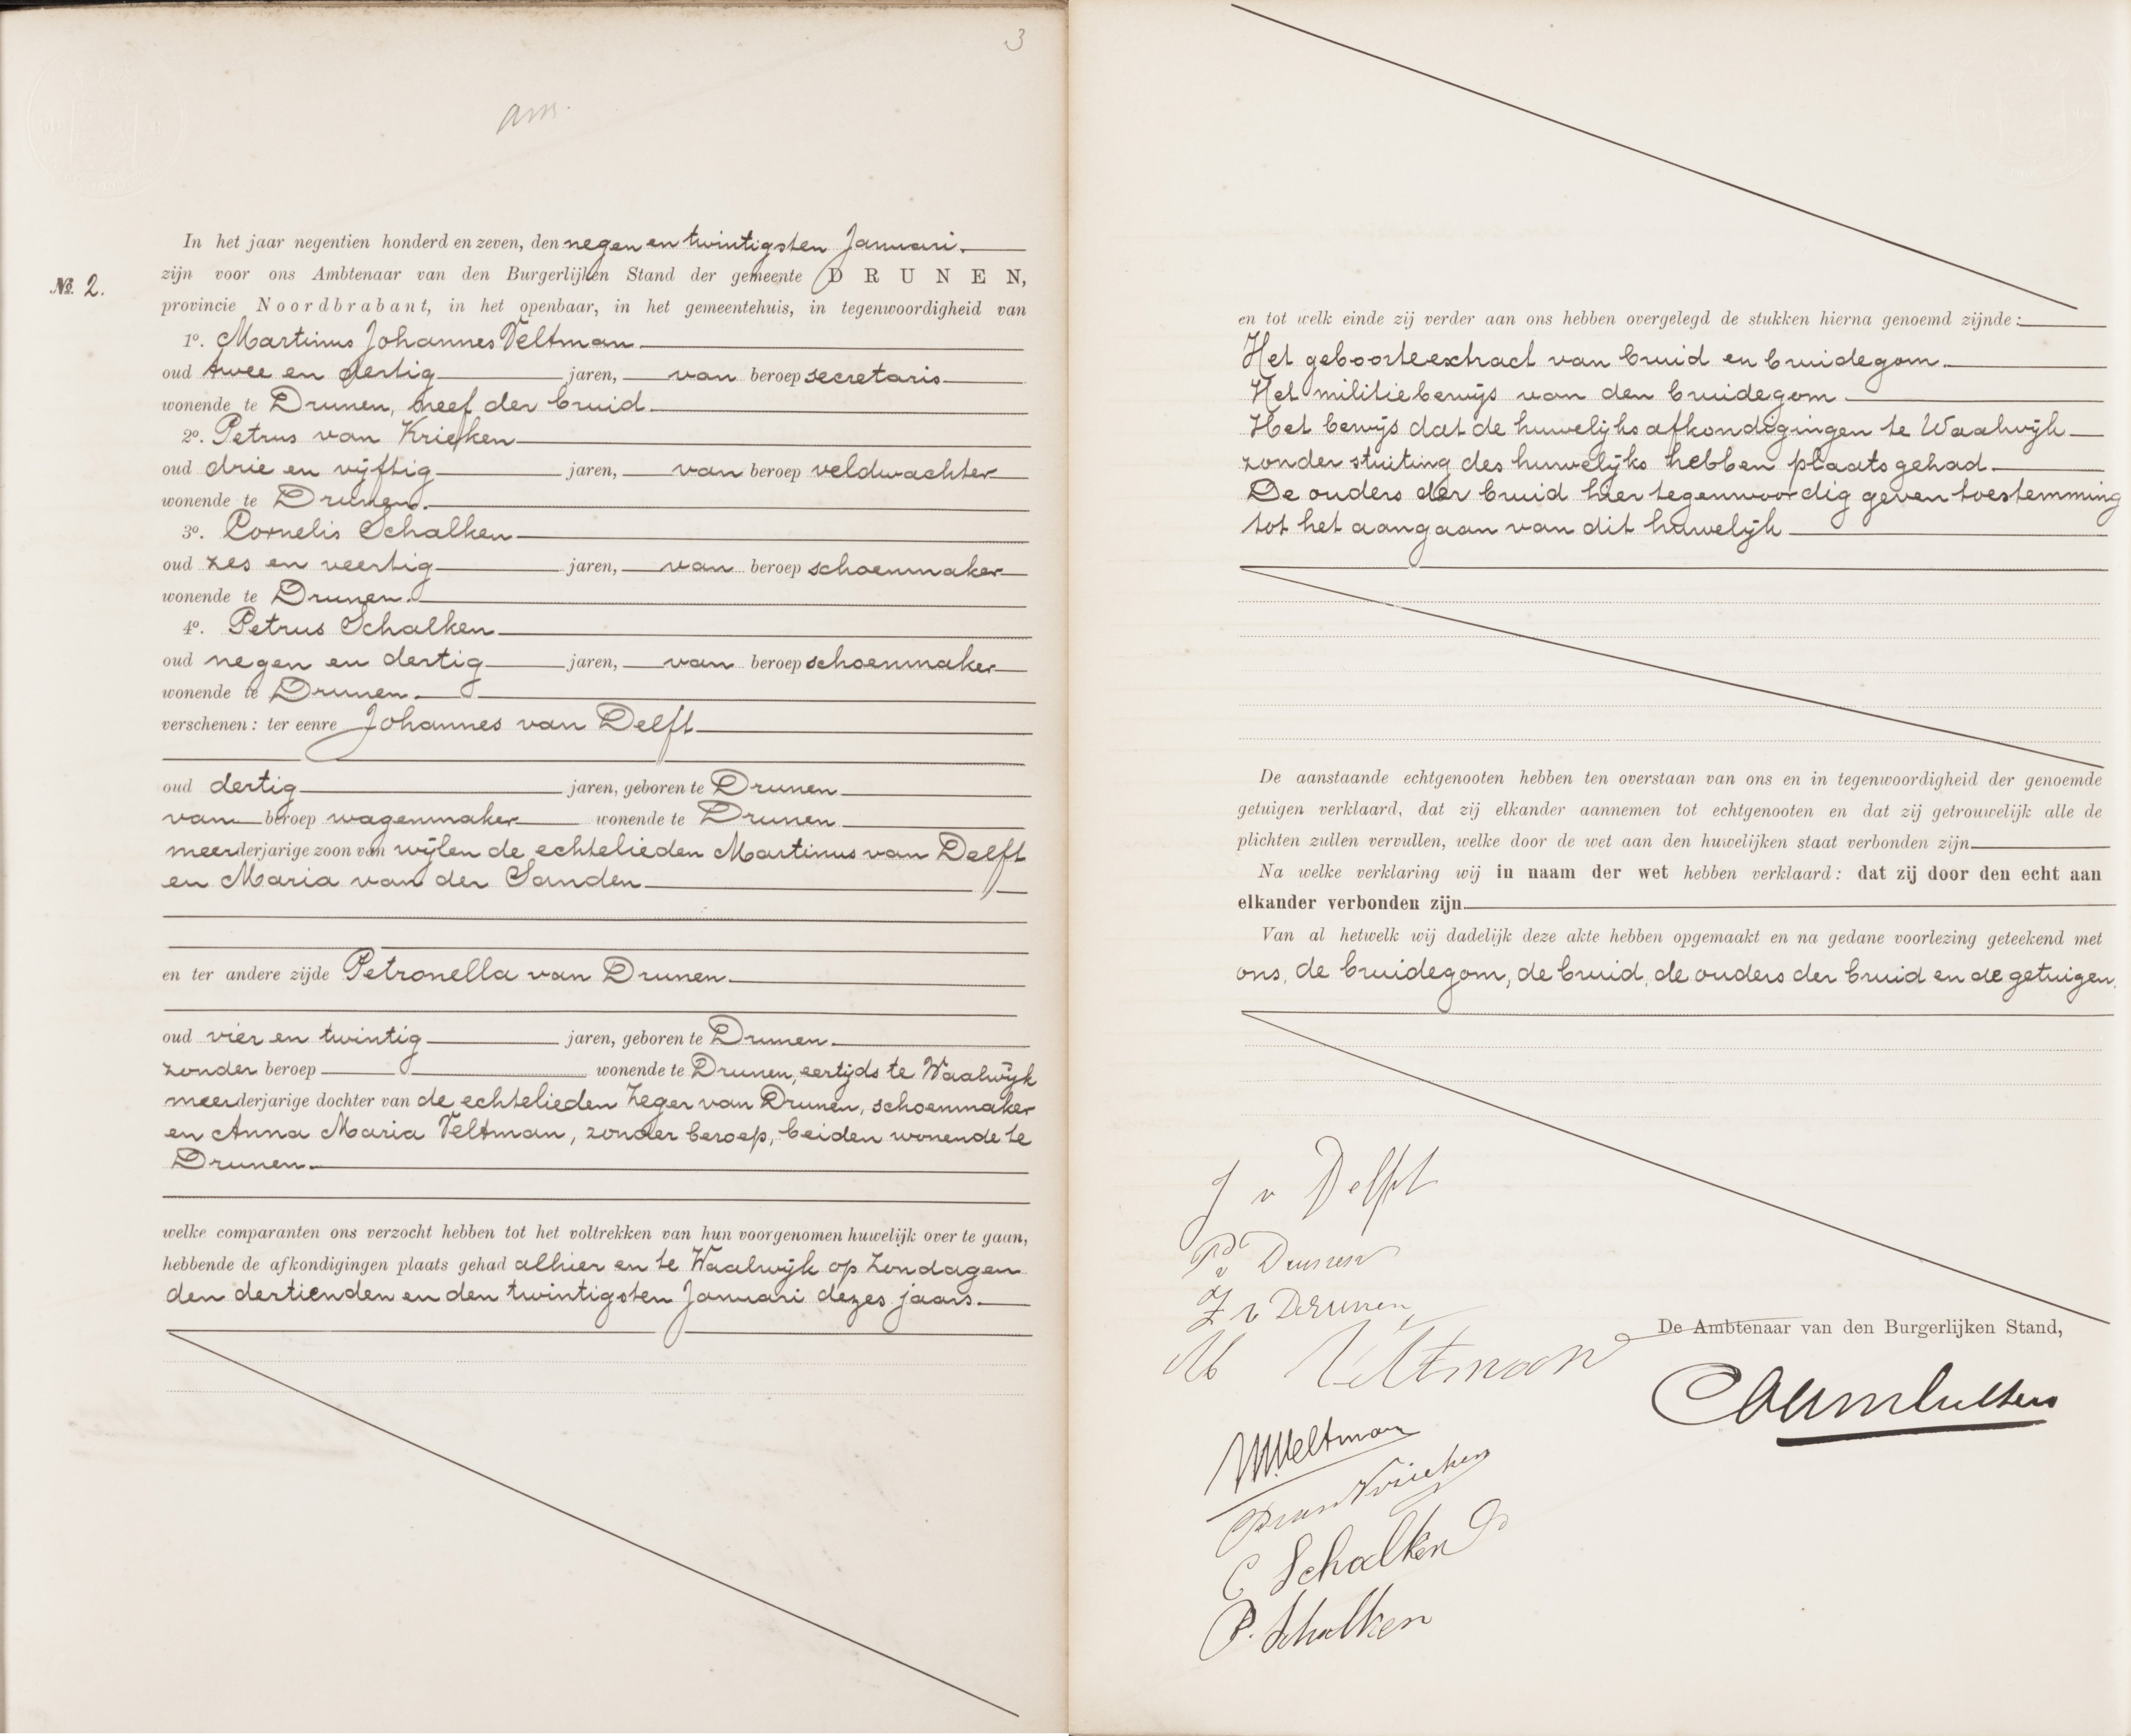 3
am.
In het jaar negentien honderd en zeven, den negen en twintigsten Januari.
No. 2.
zijn voor ons Ambtenaar van den Burgerlijken Stand der gemeente DRUNEN,
provincie Noordbrabant, in het openbaar, in het gemeentehuis, in tegenwoordigheid van
1o. Martinus Johannes Veltman
oud twee en dertig jaren, van beroep secretaris
wonende te Drunen, neef der bruid
2o. Petrus van Krieken
oud drie en vijftig jaren, van beroep veldwachter
wonende te Drunen.
3o. Cornelis Schalken
oud zes en veertig jaren, van beroep schoenmaker
wonende te Drunen.
4o. Petrus Schalken
oud negen en dertig jaren, van beroep schoenmaker
wonende te Drunen.
verschenen: ter eenre Johannes van Delft
oud dertig jaren, geboren te Drunen
van beroep wagenmaker wonende te Drunen
meerderjarige zoon van wijlen de echtelieden Martinus van Delft
en Maria van der Sanden
en ter andere zijde Petronella van Drunen
oud vier en twintig jaren, geboren te Drunen.
zonder beroep wonende te Drunen, eertijds te Waalwijk
meerderjarige dochter van de echtelieden Zeger van Drunen, schoenmaker
en Anna Maria Veltman, zonder beroep, beiden wonende te
Drunen.
welke comparanten ons verzocht hebben tot het voltrekken van hun voorgenomen huwelijk over te gaan,
hebbende de afkondigingen plaats gehad alhier en te Waalwijk op Zondagen
den dertienden en den twintigsten Januari dezes jaars.
en tot welk einde zij verder aan ons hebben overgelegd de stukken hierna genoemd zijnde:
Het geboorteextract van bruid en bruidegom.
Het militiebewijs van den bruidegom
Het bewijs dat de huwelijks afkondigingen te Waalwijk
zonder stuiting des huwelijks hebben plaats gehad.
De ouders der bruid hier tegenwoordig geven toestemming
tot het aangaan van dit huwelijk
De aanstaande echtgenooten hebben ten overstaan van ons en in tegenwoordigheid der genoemde
getuigen verklaard, dat zij elkander aannemen tot echtgenooten en dat zij getrouwelijk alle de
plichten zullen vervullen, welke door de wet aan den huwelijken staat verbonden zijn.
Na welke verklaring wij in naam der wet hebben verklaard: dat zij door den echt aan
elkander verbonden zijn.
Van al hetwelk wij dadelijk deze akte hebben opgemaakt en na gedane voorlezing geteekend met
ons, de bruidegom, de bruid, de ouders der bruid en de getuigen.
J v Delft
P v Drunen
Z v Drunen
De Ambtenaar van den Burgerlijken Stand,
M Veltman
MVeltman
P van Krieken
C Schalken
P. Schalken